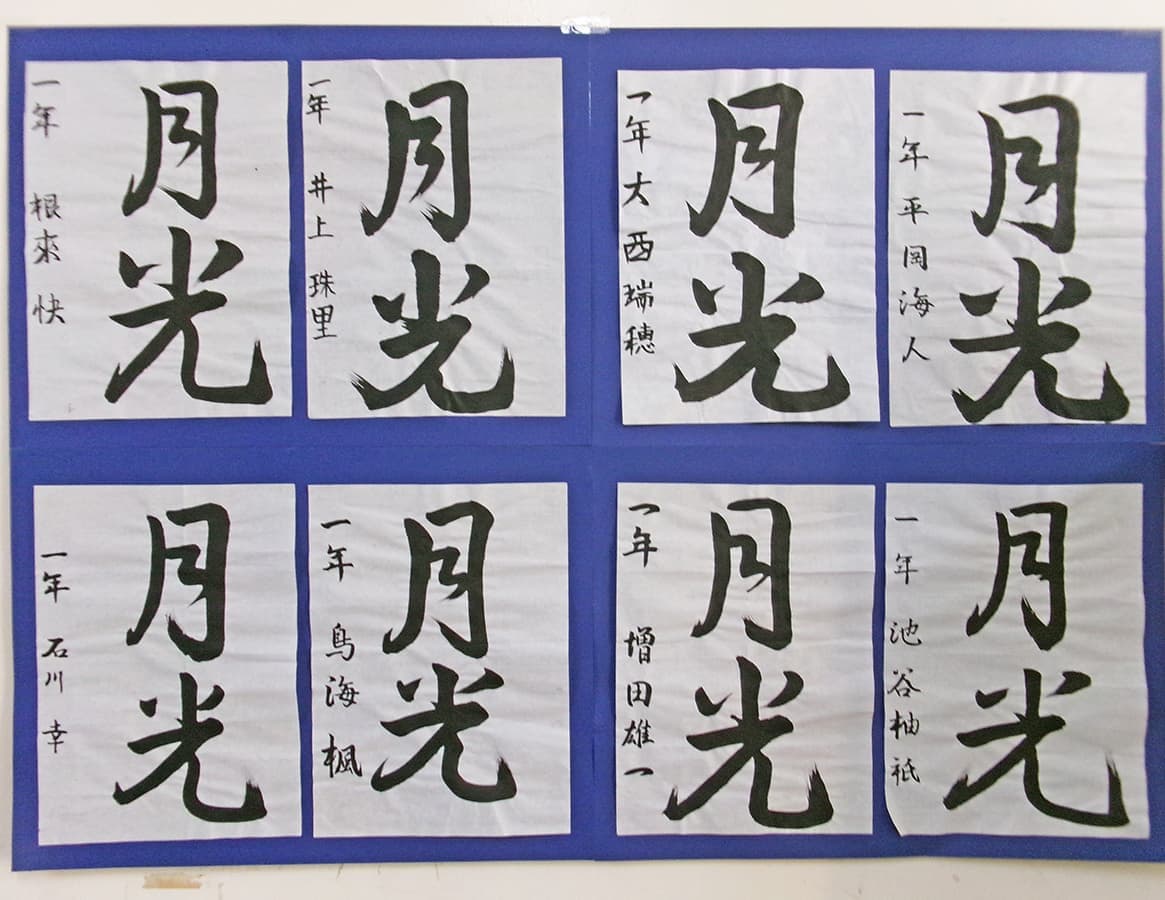 月光
一年 平岡海人
月光
一年 大西瑞穂
月光
一年 井上 珠里
月光
一年 根来 快
月光
一年 池谷柚祇
月光
一年 増田雄一
月光
一年 鳥海 楓
月光
一年 石川 幸